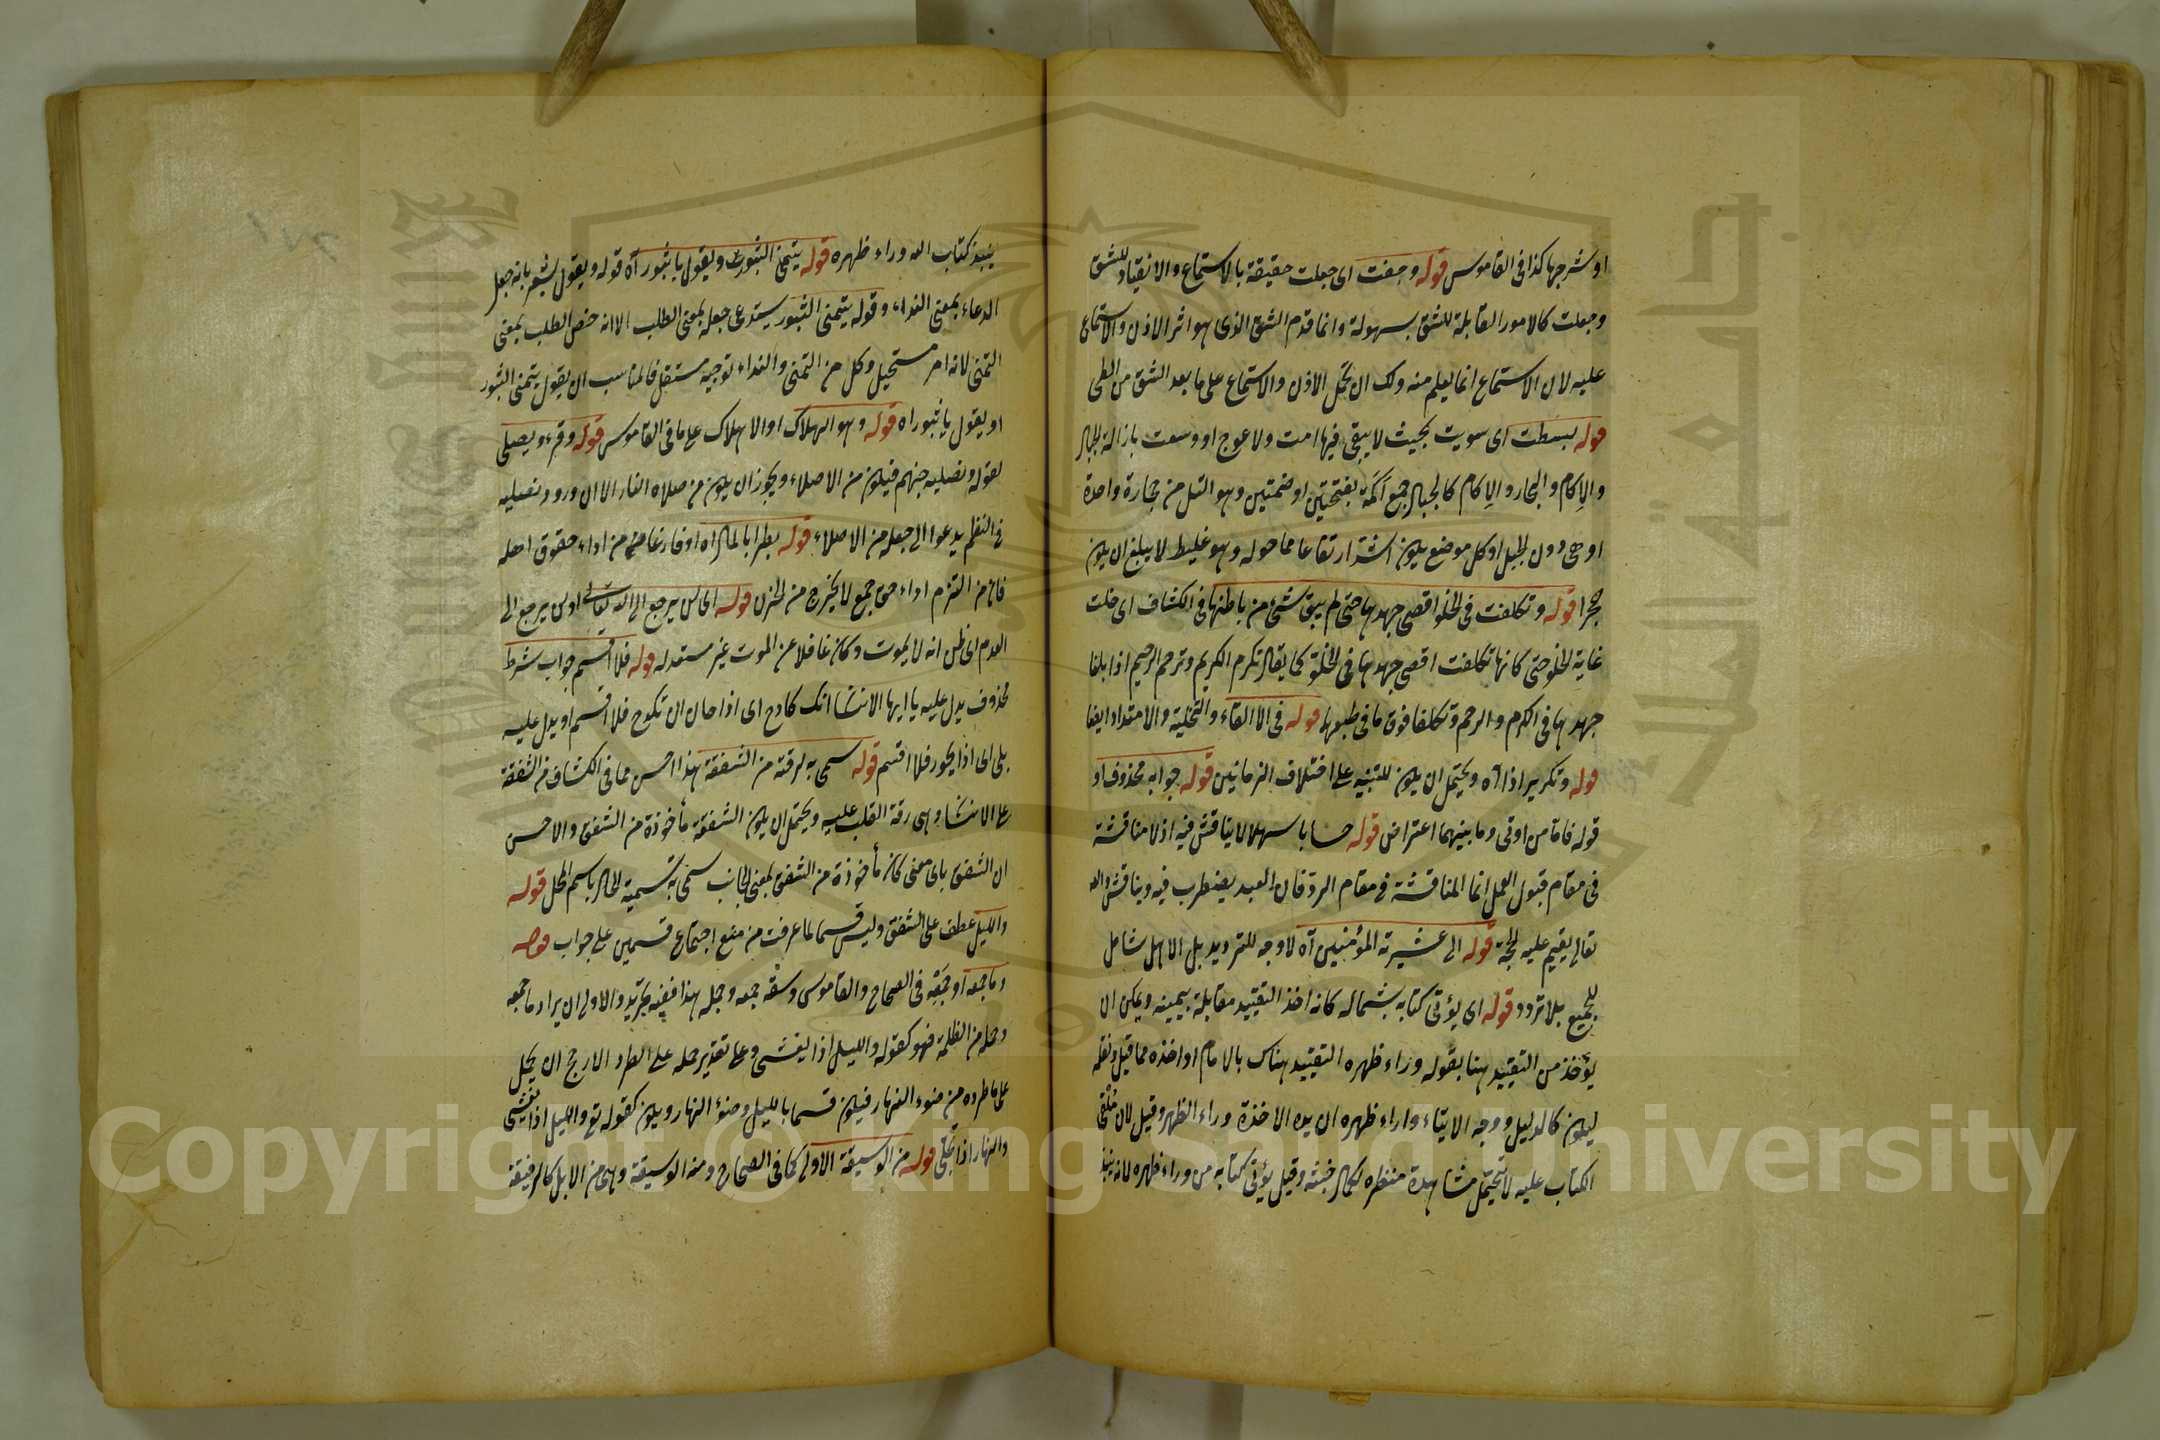 او شرجها كذا فى القاموس قوله وحقت اى جعلت حقيقة بالاستماع والانقياد للشق
وجعلت كالامور القابلة للشق بسهولة وانما قدم الشق الذى هو اثر الاذن والاستماع
عليه لان الاستماع انما يعلم منه ولك ان تحمل الاذن والاستماع على ما بعد الشق من الطى
قوله بسطت اى سويت بحيث لا يبقى فيها امت ولا عوج او وسعت بازالة الجبال
والاكام والبحار والاكام كالجبال جمع اكمة بفتحتين او ضمتين وهو التل من حجارة واحدة
او هى دون الجبل او كل موضع يكون اشد ارتفاعا مما حوله وهو غليظ لا يبلغ ان يكون
حجرا قوله وتكلفت فى الخلو اقصى جهدها حتى لم يبق شئ من باطنها فى الكشاف اى خلت
غاية الخلو حتى كانها تكلفت اقصى جهدها فى الخلو كما يقال تكرم الكريم وترحم الرحيم اذا بلغا
جهدهما فى الكرم والرحم وتكلفا فوق ما فى طبعهما قوله فى الالقاء والتخلية والامتداد ايضا
قوله وتكرير اذا آه ويحتمل ان يكون للتنبيه على اختلاف الزمانين قوله جوابه محذوف او
قوله فاما من اوتى وما بينهما اعتراض قوله حسابا سهلا لا يناقش فيه اذ لا مناقشة
فى مقام قبول العمل انما المناقشة فى مقام الرد فان العبد يضطرب فيه ويناقش والله
تعالى يقيم عليه الحجة قوله الى عشيرته المؤمنين آه لا وجه للترديد بل الاهل شامل
للجميع بلا تردد قوله اى يؤتى كتابه بشماله كانه اخذ التقييد مقابلة بيمينه ويمكن ان
يؤخذ من التقييد هنا بقوله وراء ظهره التقييد هناك بالامام او اخذه مما قيل ونقله
ليكون كالدليل ووجه الايتاء وراء ظهره ان يده الاخذة وراء الظهر وقيل لان ملقى
الكتاب عليه لا يتحمل مشاهدة منظره لكمال خبثه وقيل يؤتى كتابه من وراء ظهره لانه ينبذ
ينبذ كتاب الله وراء ظهره قوله يتمنى الثبور ويقول يا ثبوراه قوله ويقول يشعر بانه جعل
الدعاء بمعنى النداء وقوله يتمنى الثبور يستدعى جعله بمعنى الطلب الا انه خص الطلب بمعنى
التمنى لانه امر مستحيل وكل من التمنى والنداء توجيه مستقل فالمناسب ان يقول يتمنى الثبور
او يقول يا ثبوراه قوله وهو الهلاك او الاهلاك على ما فى القاموس قوله وقرء ويصلى
لقوله وتصلية جهنم فيكون من الاصلاء ويجوز ان يكون من صلاه النار الا ان ورود تصلية
فى النظم يدعو الى جعله من الاصلاء قوله بطرا بالمال آه او فارغا من اداء حقوق اهله
فانه من التزم اداء حق جمع لا يخرج من الحزن قوله اى لن يرجع الى الله تعالى او لن يرجع الى
العدم اى ظن انه لا يموت وكان غافلا عن الموت غير مستعد له قوله فلا اقسم جواب شرط
محذوف يدل عليه يا ايها الانسان انك كادح اى اذا حان ان تكدح فلا اقسم او يدل عليه
بلى اى اذا يحور فلا اقسم قوله سمى به لرقته من الشفقة هذا احسن مما فى الكشاف من الشفقة
على الانسان وهى رقة القلب عليه ويحتمل ان يكون الشفقة مأخوذة من الشفق والاحسن
ان الشفق باى معنى كان مأخوذة من الشفق بمعنى الجانب سمى به تسمية للحال باسم المحل قوله
والليل عطف على الشفق وليس قسما لما عرفت من منع اجتماع قسمين على جواب قوله
وما جمعه او جمعه فى الصحاح والقاموس وسقه جمعه وحمله هذا ففيه تجريد والاولى ان يراد ما جمعه
وحمله من الظلمة فهو كقوله والليل اذا يغشى وعلى تقدير حمله على الطرد الارجح ان يحمل
على ما طرده من ضوء النهار فيكون قسما بالليل وضوء النهار ويكون كقوله تع والليل اذا يغشى
والنهار اذا تجلى قوله من الوسيقة الاولى كما فى الصحاح ومنه الوسيقة وهى من الابل كالرفيقة
Copyright © King Saud University